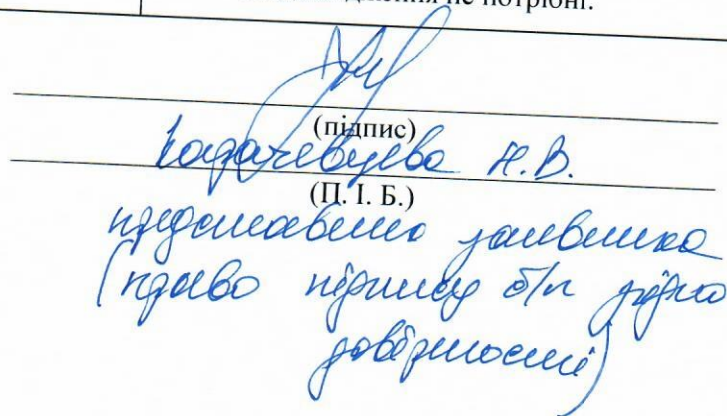 не потрібні.
(підпис)
Кадачевцева Н.В.
(П. І. Б.)
представник заявника
(право підпису б/п згідно
довіреності)